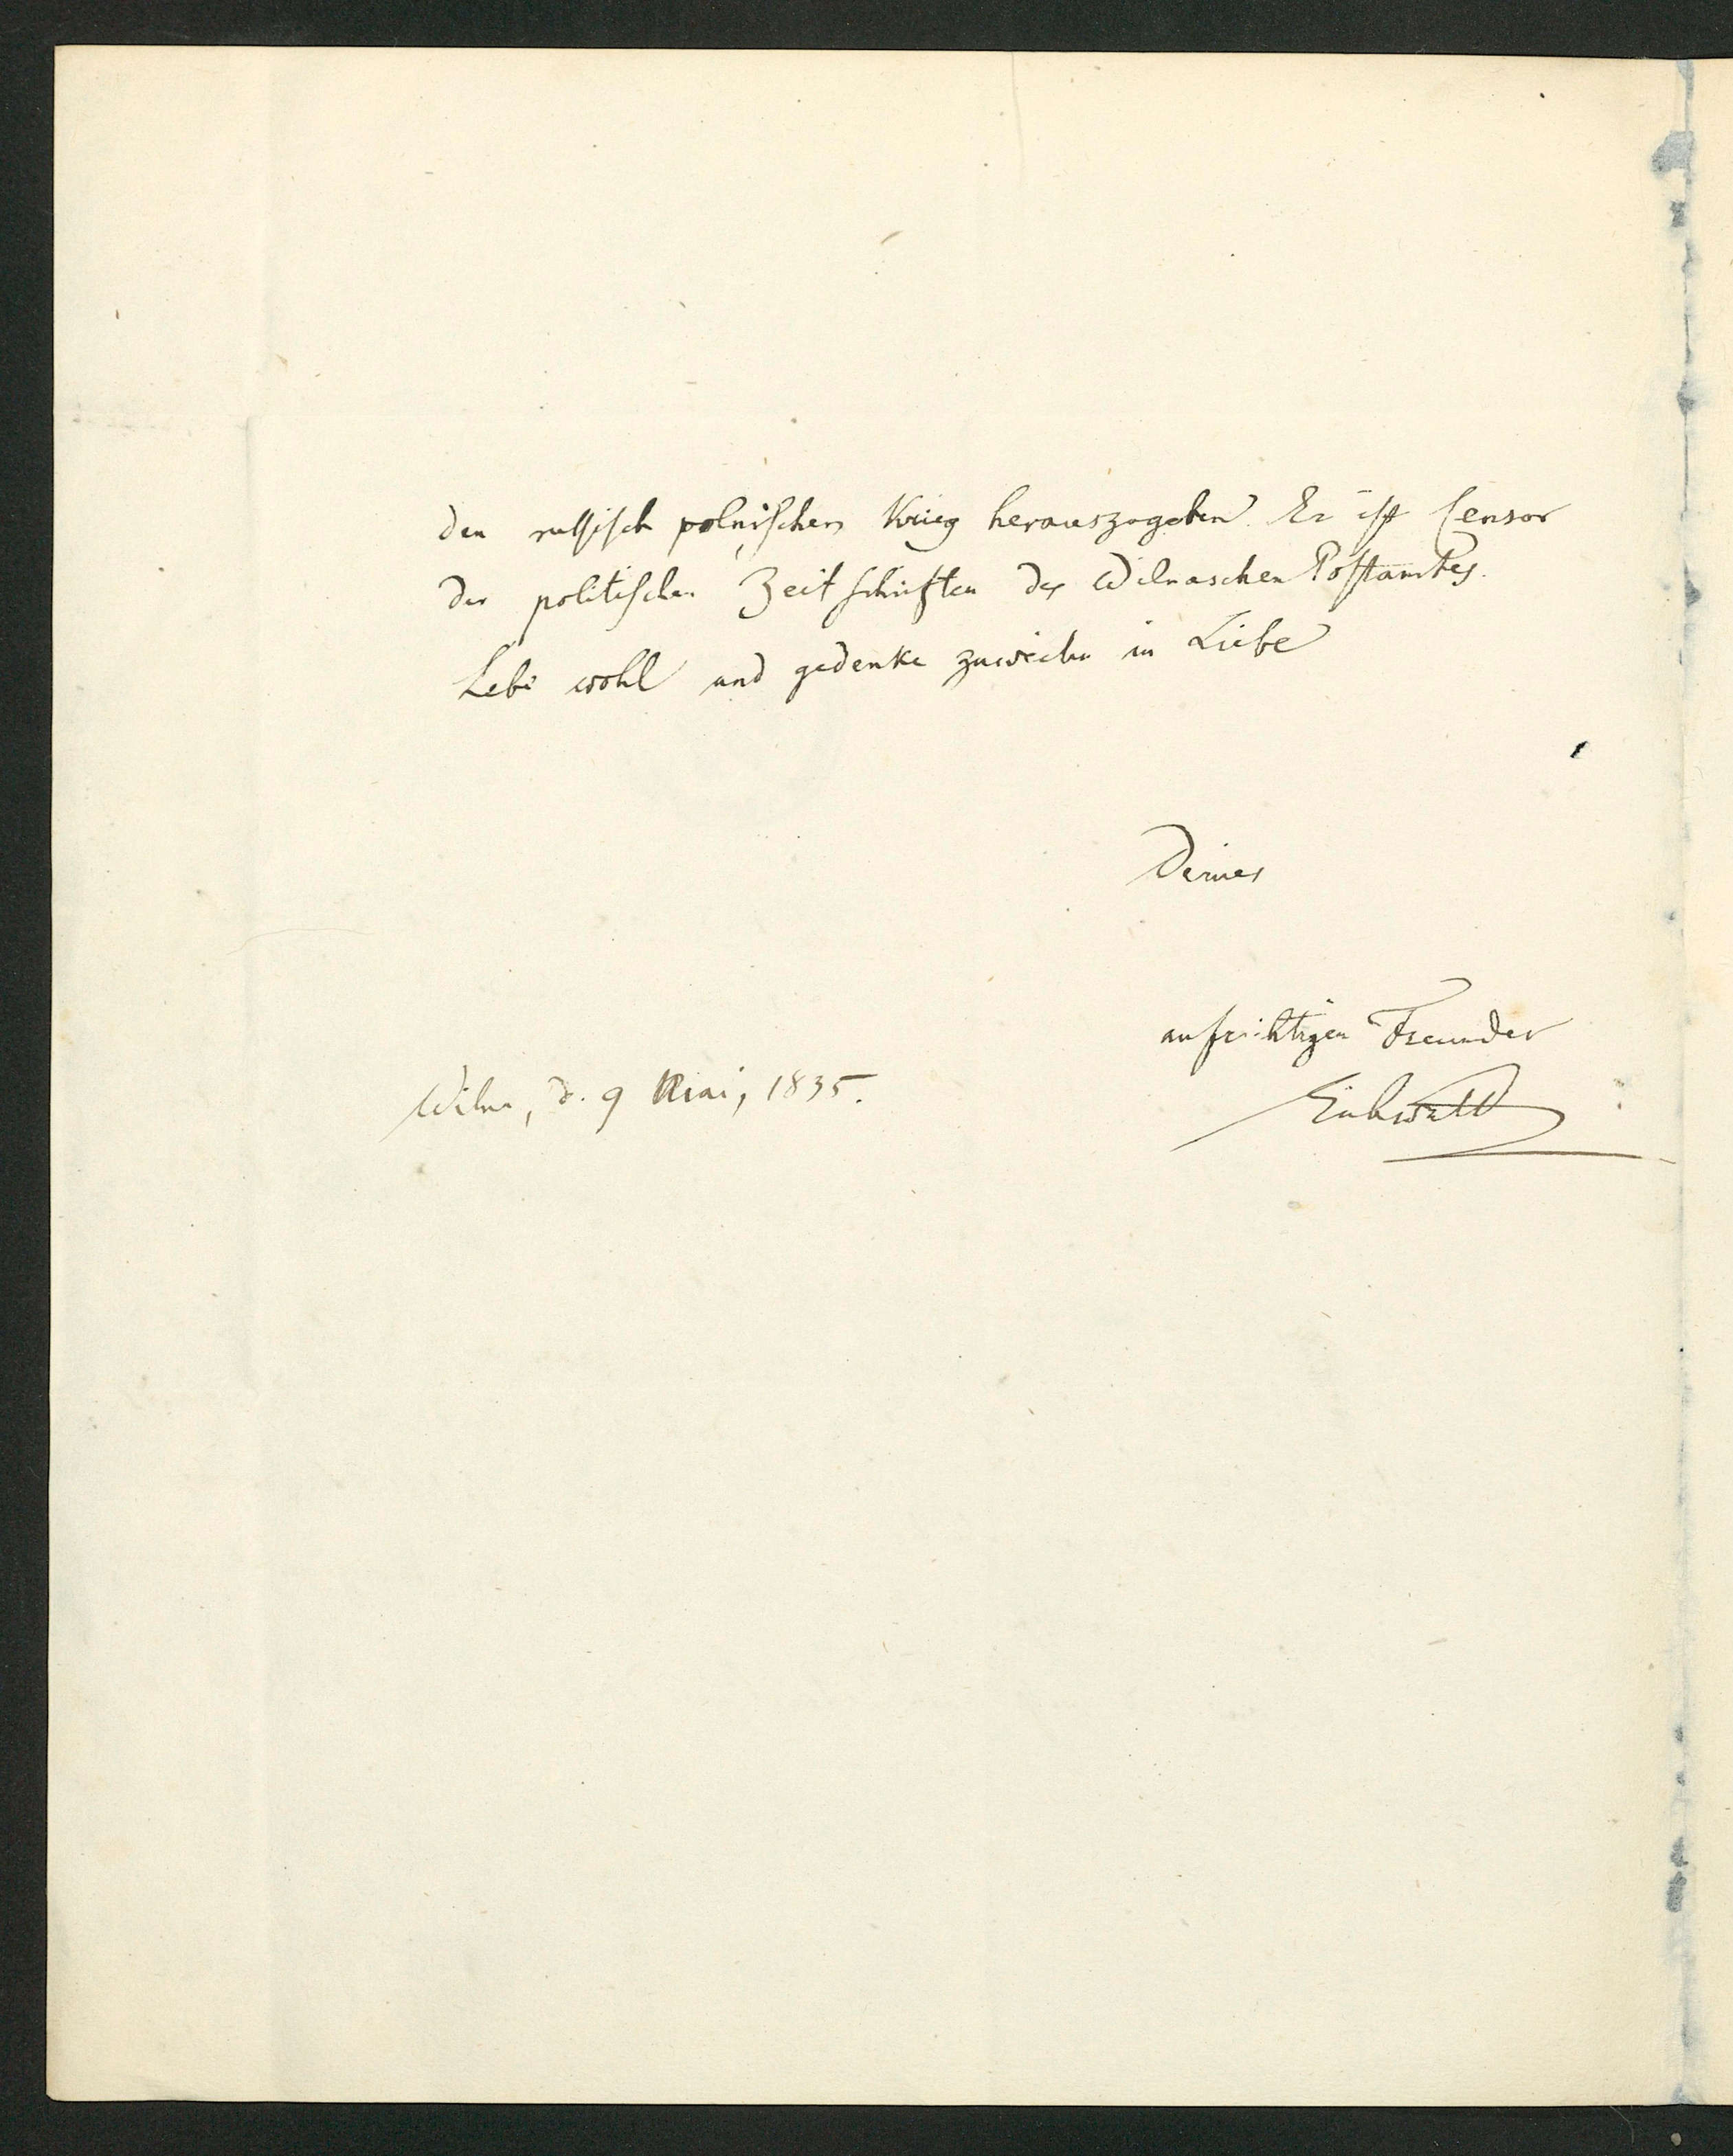 den russisch polnischen Krieg herauszugeben. Er ist Censor
der politischen Zeitschriften des Wilnaschen Postamtes.
Lebe wohl und gedenke zuweilen in Liebe
Deines
aufrichtigen Freundes
Wilna, d. 9 Mai, 1835.
Eichwald